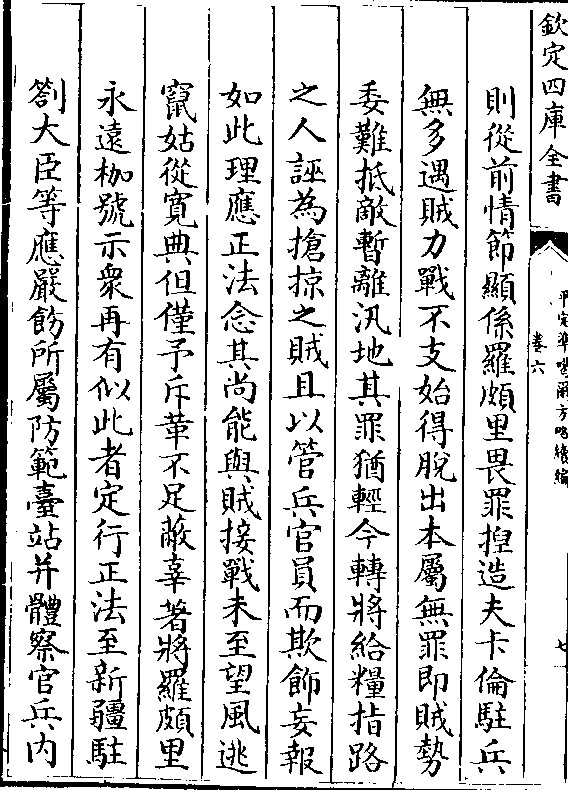 欽定四庫全書
平定準噶爾方略續編
卷六
七
則從前情節顯係羅頗里畏罪揑造夫卡倫駐兵
無多遇賊力戰不支始得脫出本屬無罪即賊勢
委難抵敵暫離汛地其罪猶輕今轉將給糧指路
之人誣為搶掠之賊且以管兵官員而欺飾妄報
如此理應正法念其尚能與賊接戰未至望風逃
竄姑從寛典但僅予斥革不足蔽辜著將羅頗里
永遠枷號示衆再有似此者定行正法至新疆駐
劄大臣等應嚴飭所屬防範臺站并體察官兵内